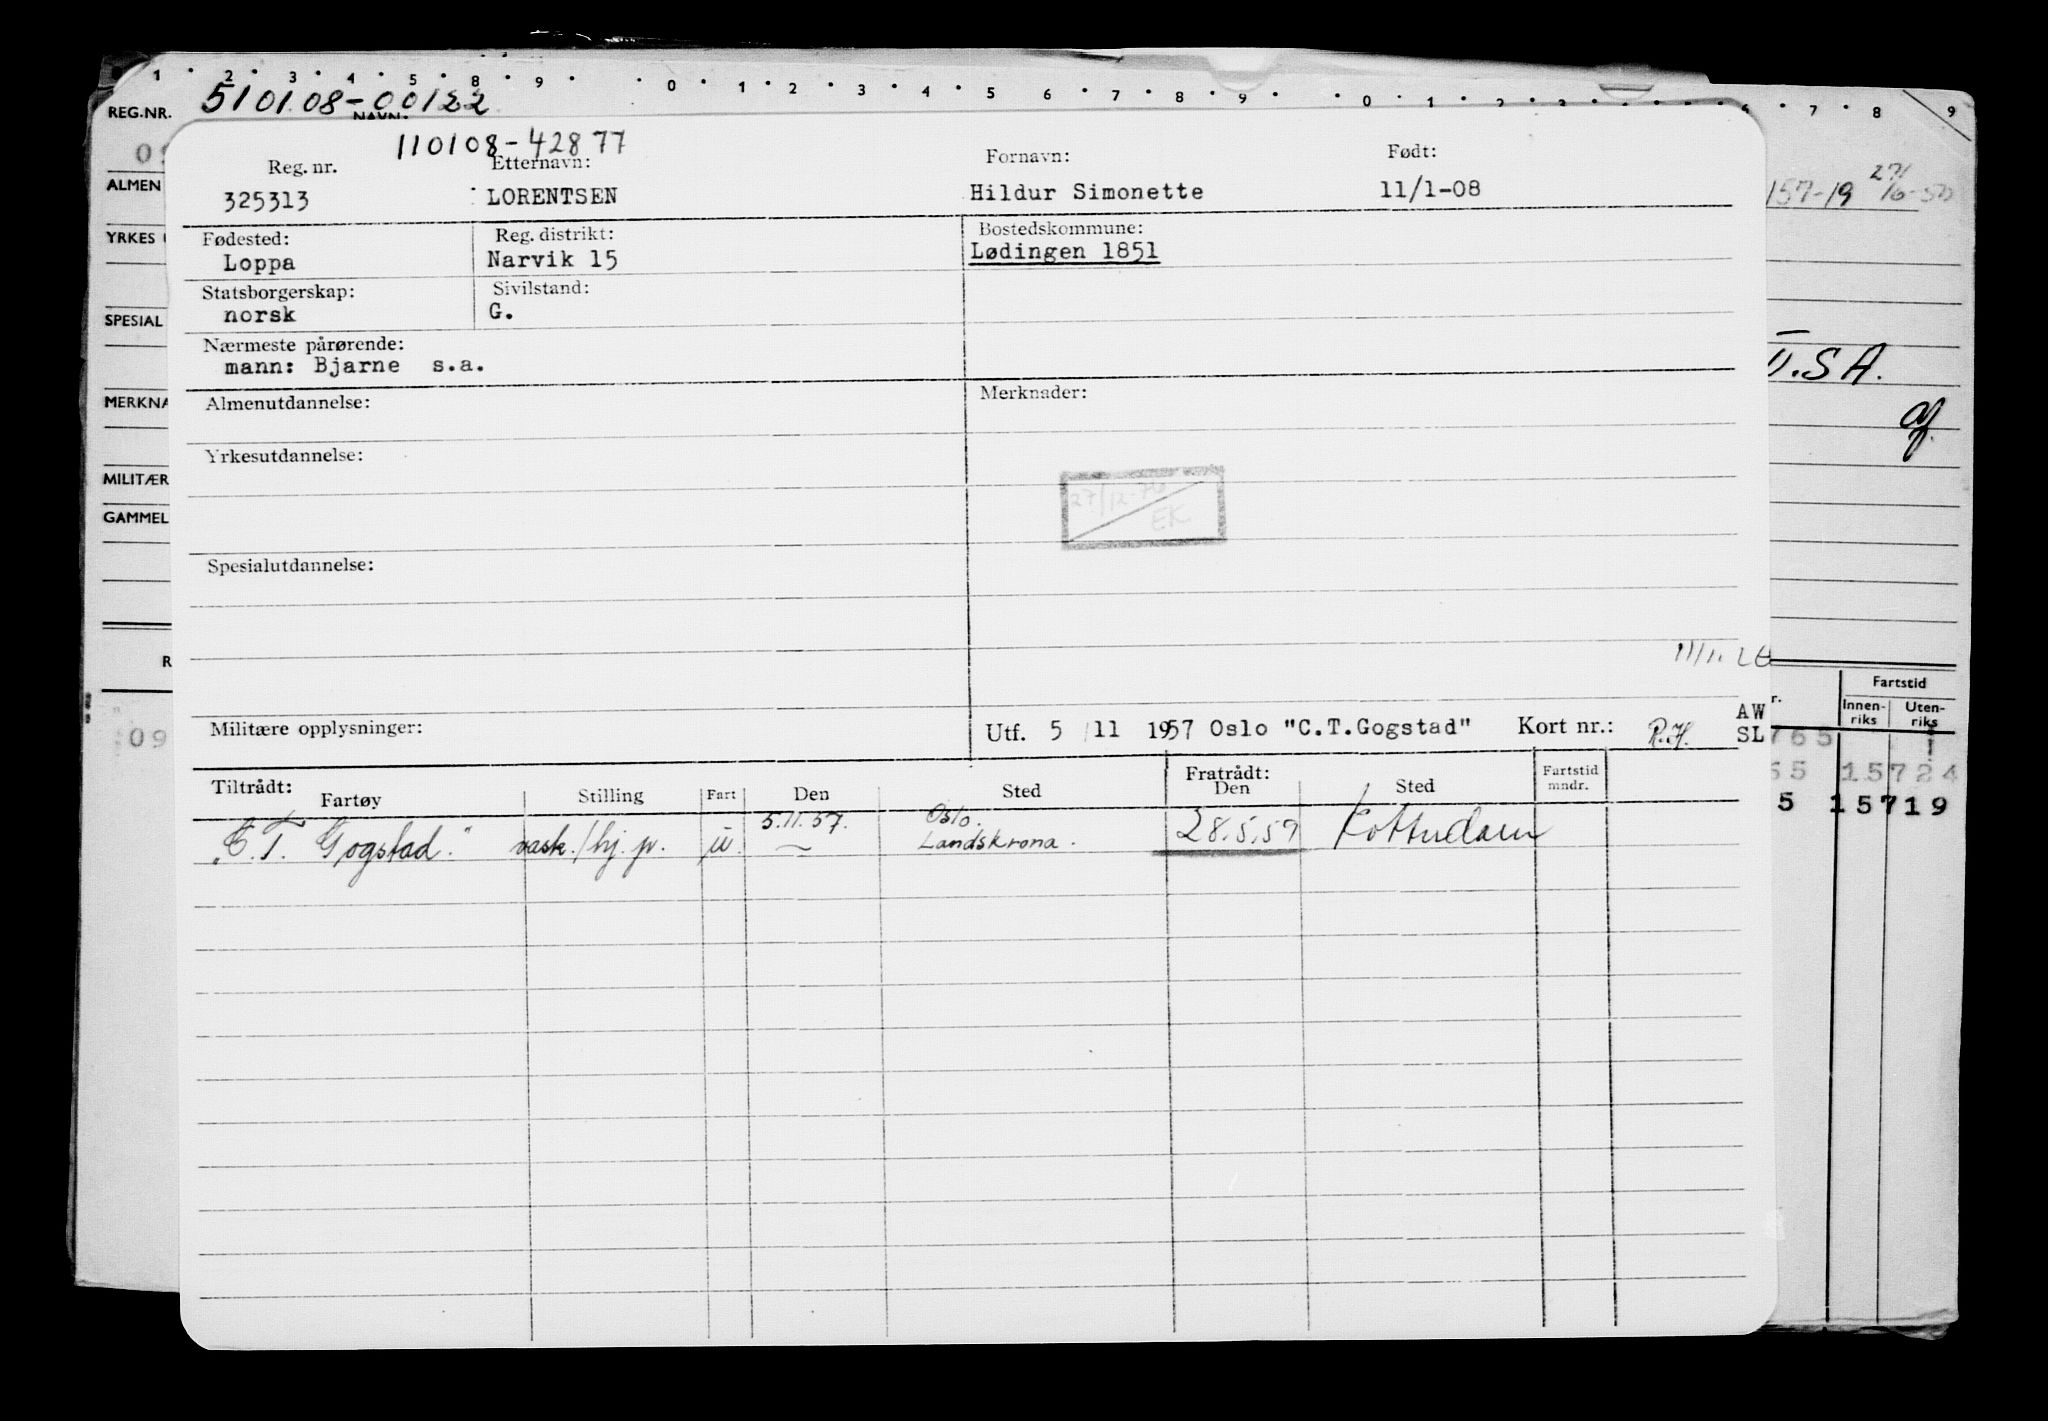 1 2 3 4 5 8 9 0 1 2 3 4 5 6 7 8 9 0 1 2 3 6 7 8 9
REG.NR. 510108-00122
NAVN:
110108-42877
Reg. nr. Etternavn: Fornavn: Født:
325313 LORENTSEN Hildur Simonette 11/1-08
ALMEN
157-19
YRKES
Fødested: Reg. distrikt: Bostedskommune:
Loppa Narvik 15 Lødingen 1851
Statsborgerskap: Sivilstand:
norsk G.
SPESIAL
Nærmeste pårørende:
mann: Bjarne s.a.
U.S.A.
MERKNA
Almenutdannelse: Merknader:
Yrkesutdannelse:
MILITÆR
27/12-70
EK
GAMMEL
Spesialutdannelse:
R
Fartstid
Innen-
riks
Uten-
riks
Militære opplysninger: Utf. 5/11 1957 Oslo "C.T.Gogstad" Kort nr.: R.H.
AW
SL
09
765
55 15724
5 15719
Tiltrådt: Fratrådt:
Fartøy Stilling Fart Den Sted Den Sted Fartstid
mndr.
5.11.57. Oslo.
"C.T. Gogstad." vask./hj. p. u. — Landskrona. 28.5.59 Rotterdam